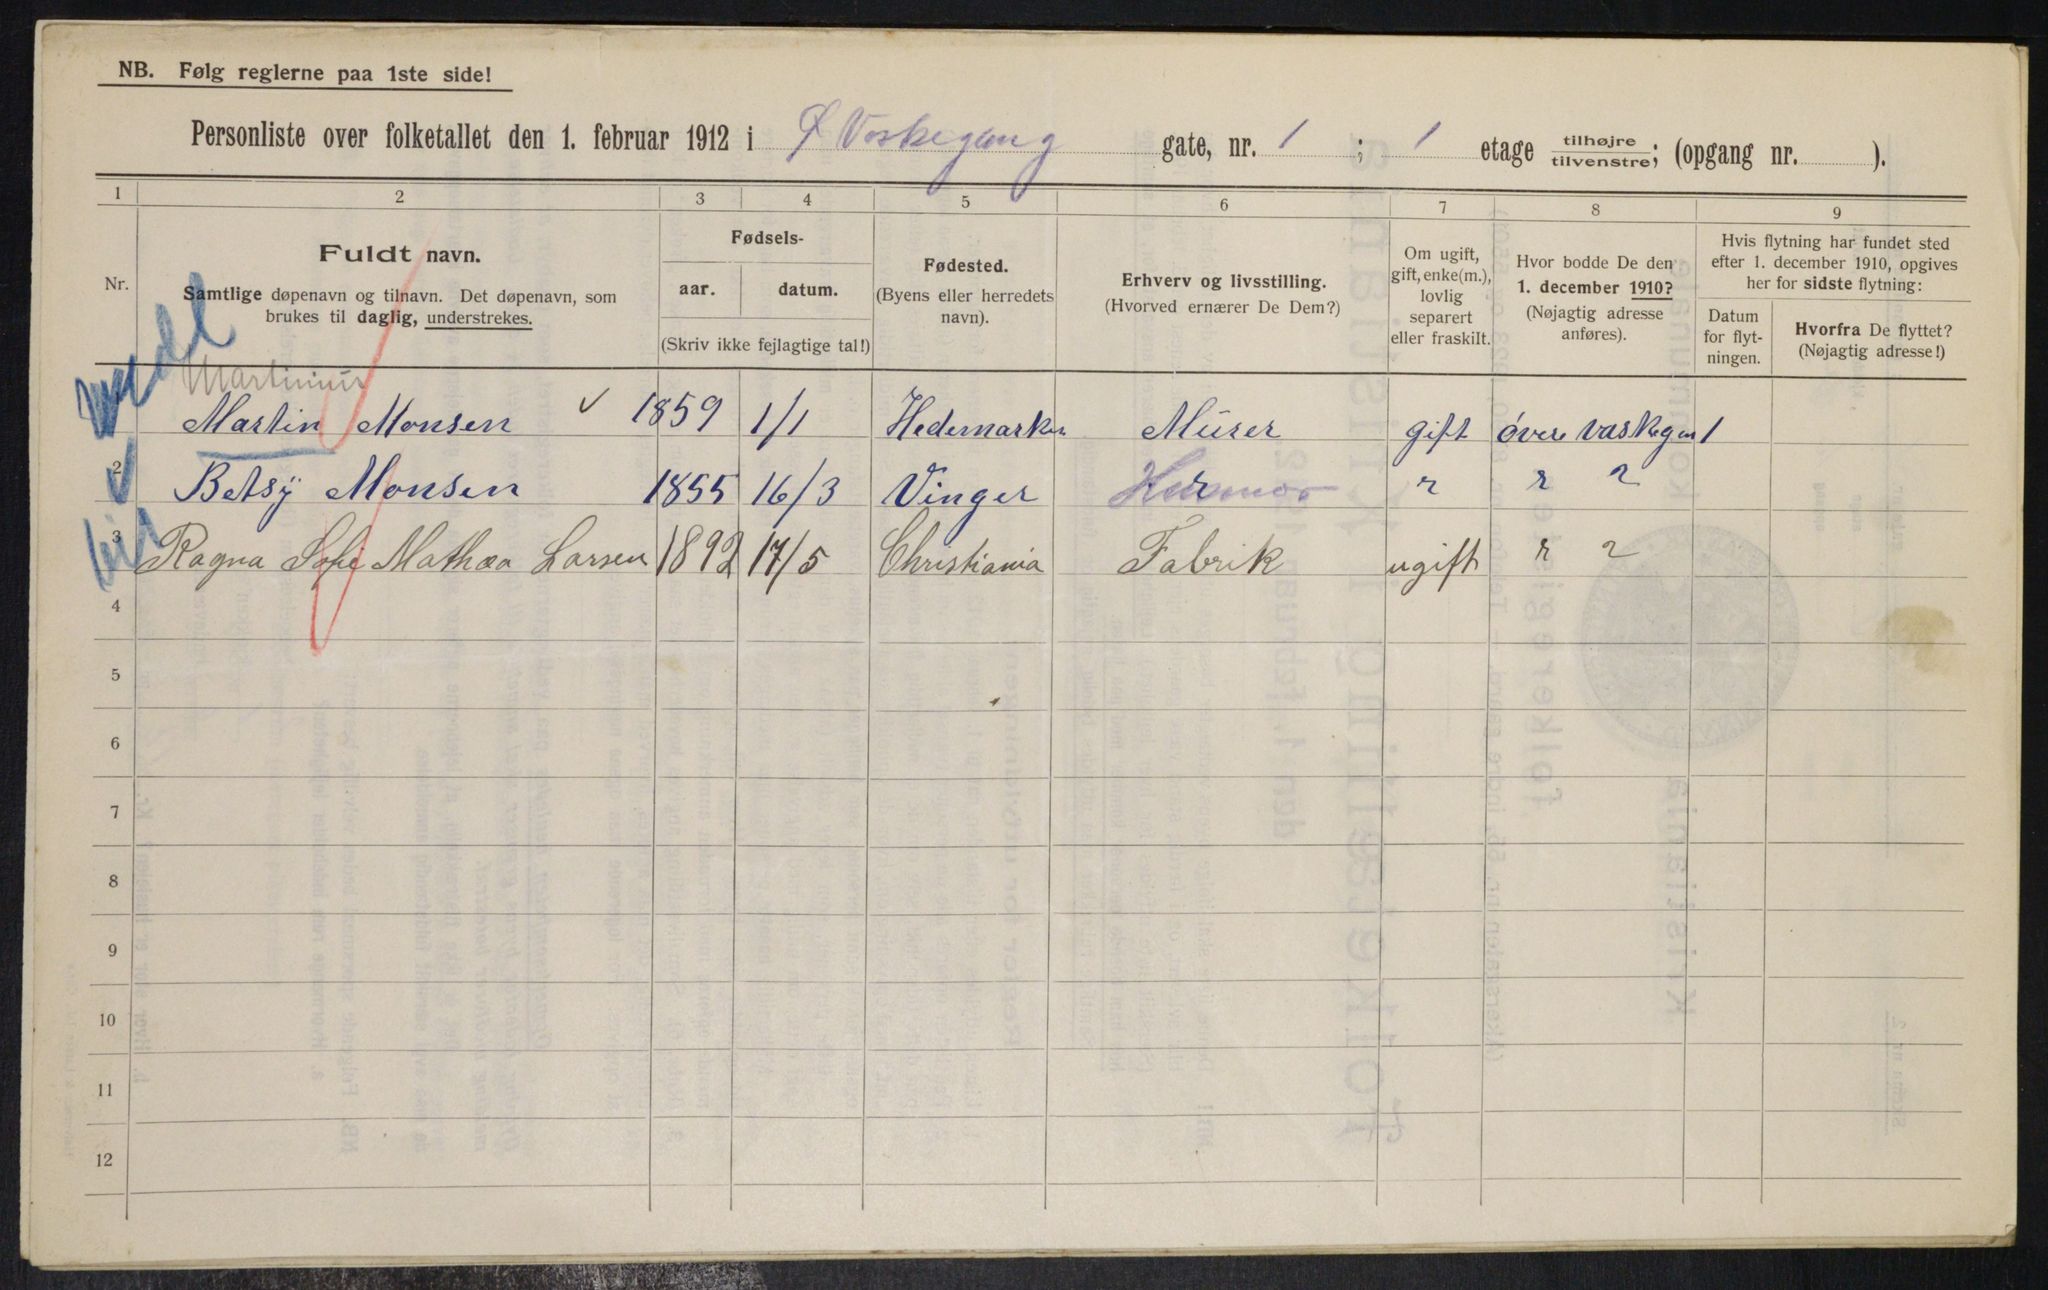 NB. Følg reglerne paa 1ste side!
Personliste over folketallet den 1. februar 1912 i Ø Vaskegang gate, nr. 1; 1 etage tilhøjre tilvenstre; (opgang nr. ).
1 2 3 4 5 6 7 8 9
Nr.
Fuldt navn.
Samtlige døpenavn og tilnavn. Det døpenavn, som
brukes til daglig, understrekes.
Fødsels-
aar. datum.
(Skriv ikke fejlagtige tal!)
Fødested.
(Byens eller herredets
navn).
Erhverv og livsstilling.
(Hvorved ernærer De Dem?)
Om ugift,
gift, enke(m.),
lovlig
separert
eller fraskilt.
Hvor bodde De den
1. december 1910?
(Nøjagtig adresse
anføres).
Hvis flytning har fundet sted
efter 1. december 1910, opgives
her for sidste flytning:
Datum
for flyt-
ningen.
Hvorfra De flyttet?
(Nøjagtig adresse!)
Martinius
Martin Monsen 1859 1/1 Hedemarken Mürer gift övere vaskegan 1
2 Betsÿ Monsen 1855 16/3 Vinger Husmor " " "
3 Ragna Sofie Mathea Larsen 1892 17/5 Christiania Fabrik ugift " "
4
5
6
7
8
9
10
11
12